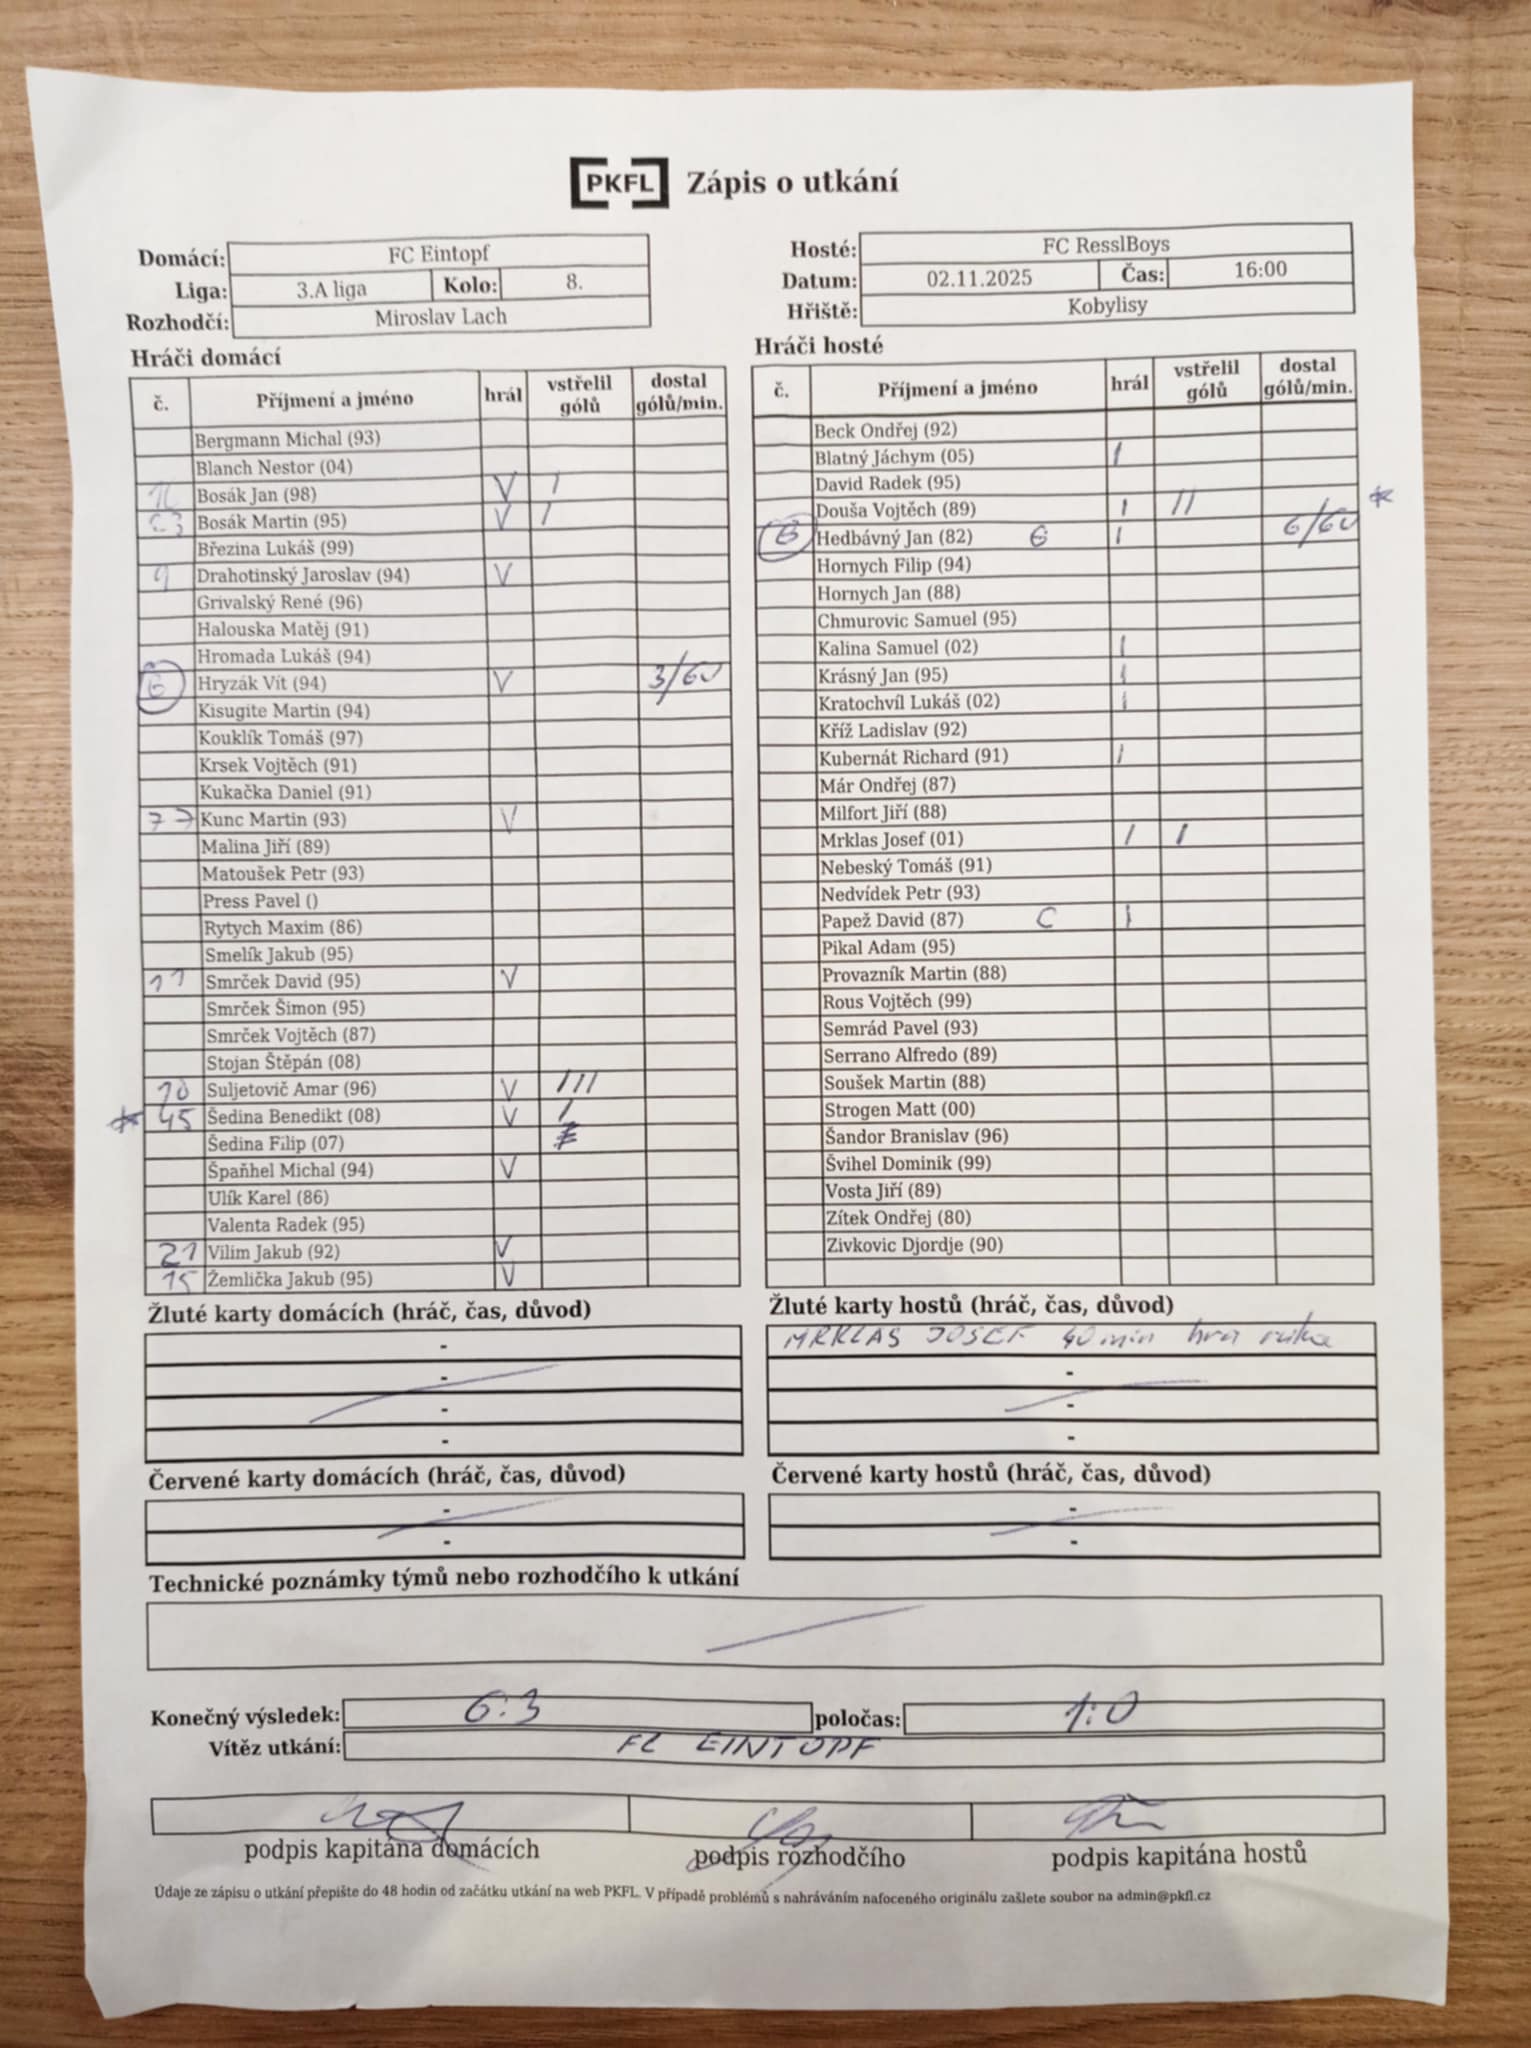 PKFL Zápis o utkání
Domácí: FC Eintopf
Liga: 3.A liga Kolo: 8.
Rozhodčí: Miroslav Lach
Hosté: FC ResslBoys
Datum: 02.11.2025 Čas: 16:00
Hřiště: Kobylisy
Hráči domácí
č. Příjmení a jméno hrál vstřelil gólů dostal gólů/min.
Bergmann Michal (93)
Blanch Nestor (04)
Bosák Jan (98) V I
Bosák Martin (95) V I
Březina Lukáš (99)
9 Drahotinský Jaroslav (94) V
Grivalský René (96)
Halouska Matěj (91)
Hromada Lukáš (94)
G Hryzák Vít (94) V 3/60
Kisugite Martin (94)
Kouklík Tomáš (97)
Krsek Vojtěch (91)
Kukačka Daniel (91)
77 Kunc Martin (93) V
Malina Jiří (89)
Matoušek Petr (93)
Press Pavel ()
Rytych Maxim (86)
Smelík Jakub (95)
11 Smrček David (95) V
Smrček Šimon (95)
Smrček Vojtěch (87)
Stojan Štěpán (08)
10 Suljetovič Amar (96) V III
* 45 Šedina Benedikt (08) V I
Šedina Filip (07)
Špaňhel Michal (94) V
Ulík Karel (86)
Valenta Radek (95)
21 Vilim Jakub (92) V
15 Žemlička Jakub (95) V
Hráči hosté
č. Příjmení a jméno hrál vstřelil gólů dostal gólů/min.
Beck Ondřej (92)
Blatný Jáchym (05) I
David Radek (95)
Douša Vojtěch (89) I II *
G Hedbávný Jan (82) G I 6/60
Hornych Filip (94)
Hornych Jan (88)
Chmurovic Samuel (95)
Kalina Samuel (02) I
Krásný Jan (95) I
Kratochvíl Lukáš (02) I
Kříž Ladislav (92)
Kubernát Richard (91) I
Már Ondřej (87)
Milfort Jiří (88)
Mrklas Josef (01) I I
Nebeský Tomáš (91)
Nedvídek Petr (93)
Papež David (87) C I
Pikal Adam (95)
Provazník Martin (88)
Rous Vojtěch (99)
Semrád Pavel (93)
Serrano Alfredo (89)
Soušek Martin (88)
Strogen Matt (00)
Šandor Branislav (96)
Švihel Dominik (99)
Vosta Jiří (89)
Zítek Ondřej (80)
Zivkovic Djordje (90)
Žluté karty domácích (hráč, čas, důvod)
-
-
-
-
Žluté karty hostů (hráč, čas, důvod)
MRKLAS JOSEF 40 min hra ruka
-
-
-
Červené karty domácích (hráč, čas, důvod)
-
-
Červené karty hostů (hráč, čas, důvod)
-
-
Technické poznámky týmů nebo rozhodčího k utkání
Konečný výsledek: 6:3 poločas: 1:0
Vítěz utkání: FC EINTOPF
podpis kapitána domácích podpis rozhodčího podpis kapitána hostů
Údaje ze zápisu o utkání přepište do 48 hodin od začátku utkání na web PKFL. V případě problémů s nahráváním nafoceného originálu zašlete soubor na admin@pkfl.cz